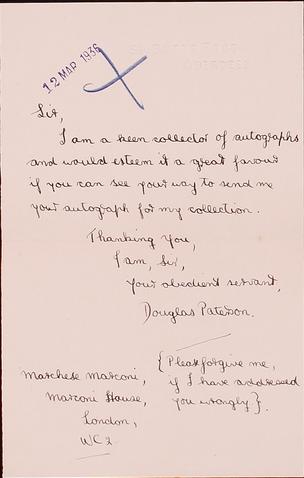 12 MAR 1936
Sir,
I am a keen collector of autographs
and would esteem it a great favour
if you can see your way to send me
your autograph for my collection.
Thanking you,
I am, Sir,
your obedient servant,
Douglas Paterson.
Marchese Marconi,
Marconi House,
London,
WC2.
{Please forgive me,
if I have addressed
you wrongly}.